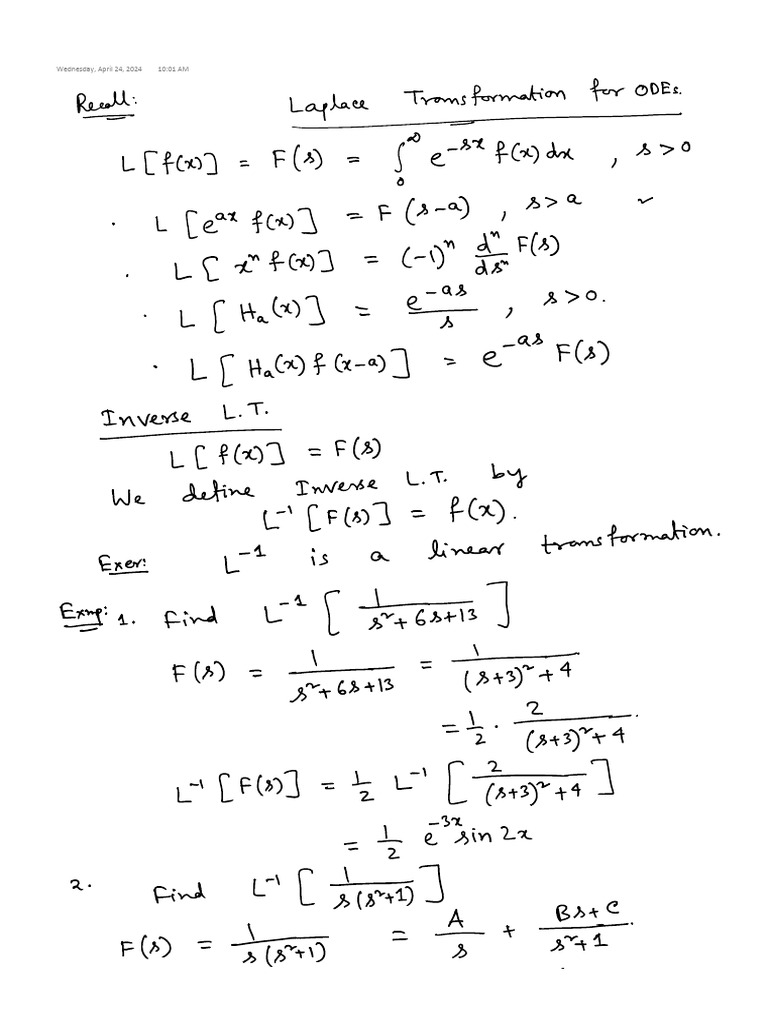 Wednesday, April 24, 2024 10:01 AM
Recall: Laplace Transformation for ODEs.
L[f(x)] = F(s) = ∫₀^∞ e^{-sx} f(x) dx , s > 0
· L[e^{ax} f(x)] = F(s-a) , s > a ✓
· L[x^n f(x)] = (-1)^n d^n/ds^n F(s)
· L[H_a(x)] = e^{-as}/s , s > 0.
· L[H_a(x) f(x-a)] = e^{-as} F(s)
Inverse L.T.
L[f(x)] = F(s)
We define Inverse L.T. by
L^{-1}[F(s)] = f(x).
Exer: L^{-1} is a linear transformation.
Exmp: 1. Find L^{-1}[1/(s²+6s+13)]
F(s) = 1/(s²+6s+13) = 1/((s+3)²+4)
= 1/2 · 2/((s+3)²+4).
L^{-1}[F(s)] = 1/2 L^{-1}[2/((s+3)²+4)]
= 1/2 e^{-3x} sin 2x
2. Find L^{-1}[1/(s(s²+1))]
F(s) = 1/(s(s²+1)) = A/s + (Bs+C)/(s²+1).